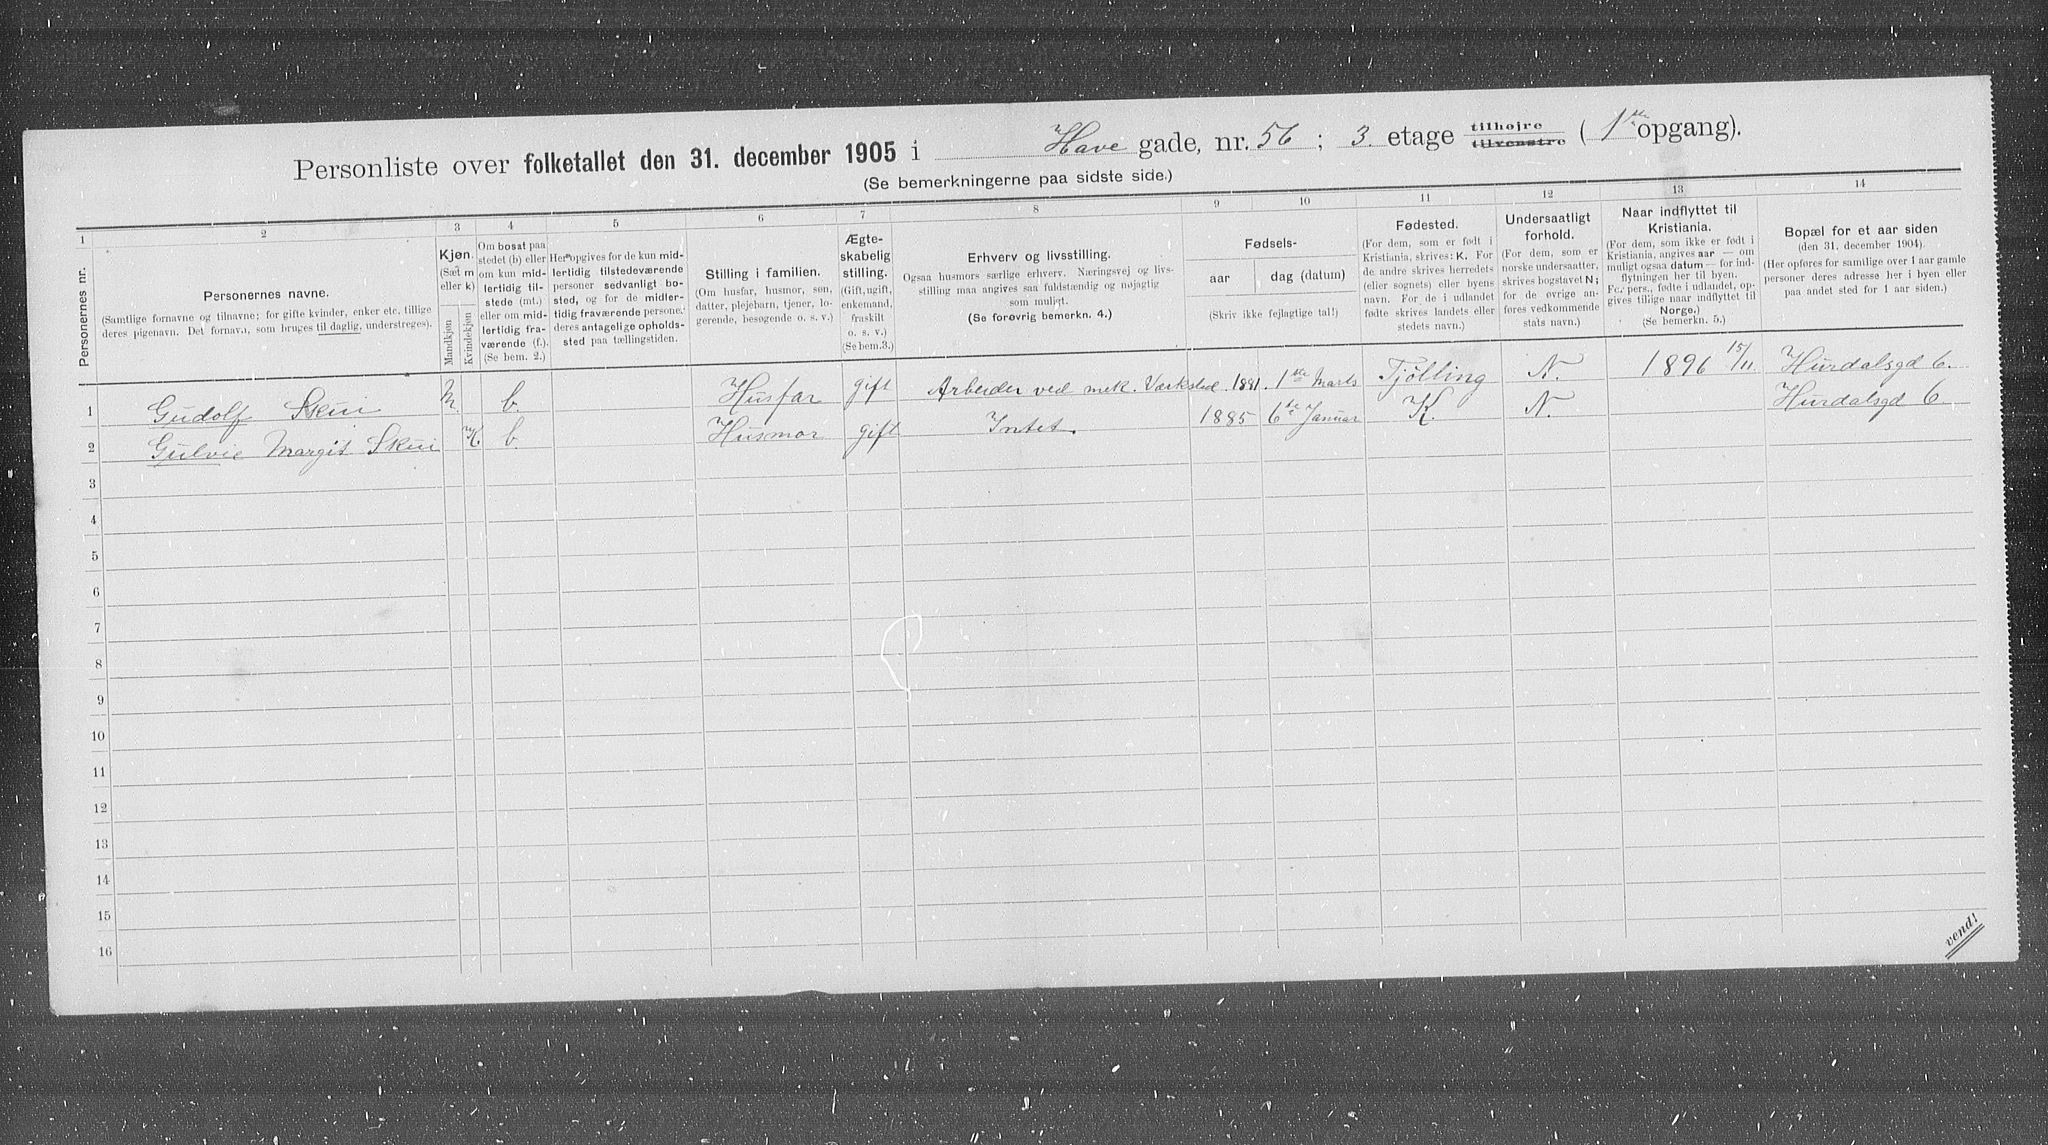 Personliste over folketallet den 31. december 1905 i Have gade, nr. 56 ; 3. etage tilhøjre tilvenstre ( 1ste opgang).
(Se bemerkningerne paa sidste side.)
1 2 3 4 5 6 7 8 9 10 11 12 13 14
Personernes nr.
Personernes navne.
(Samtlige fornavne og tilnavne; for gifte kvinder, enker etc. tillige
deres pigenavn. Det fornavn, som bruges til daglig, understreges).
Kjøn.
(Sæt m
eller k)
Mandkjøn
Kvindekjøn
Om bosat paa
stedet (b) eller
om kun mid-
lertidig til-
stede (mt.)
eller om mid-
lertidig fra-
værende (f.).
(Se bem. 2.)
Her opgives for de kun mid-
lertidig tilstedeværende
personer sedvanligt bo-
sted, og for de midler-
tidig fraværende personer
deres antagelige opholds-
sted paa tællingstiden.
Stilling i familien.
(Om husfar, husmor, søn,
datter, plejebarn, tjener, lo-
gerende, besøgende o. s. v.)
Ægte-
skabelig
stilling.
(Gift, ugift,
enkemand,
fraskilt
o. s. v.)
(Se bem.3.)
Erhverv og livsstilling.
Ogsaa husmors særlige erhverv. Næringsvej og livs-
stilling maa angives saa fuldstændig og nøjagtig
som muligt.
(Se forøvrig bemerkn. 4.)
Fødsels-
aar dag (datum)
(Skriv ikke fejlagtige tal!)
Fødested.
(For dem, som er født i
Kristiania, skrives: K. For
de andre skrives herredets
(eller sognets) eller byens
navn. For de i udlandet
fødte skrives landets eller
stedets navn.)
Undersaatligt
forhold.
(For dem, som er
norske undersaatter,
skrives bogstavet N;
for de øvrige an-
føres vedkommende
stats navn.)
Naar indflyttet til
Kristiania.
(For dem, som ikke er født i
Kristiania, angives aar — om
muligt ogsaa datum — for ind-
flytningen her til byen.
For pers., fødte i udlandet, op-
gives tillige naar indflyttet til
Norge.)
(Se bemerkn. 5.)
Bopæl for et aar siden
(den 31. december 1904).
(Her opføres for samtlige over 1 aar gamle
personer deres adresse her i byen eller
paa andet sted for 1 aar siden.)
1 Gudolf Skui M b. Husfar gift Arbeider ved mek. Værksted. 1881. 1ste Marts Tjölling N. 1896 15/11 Hurdalsgd 6.
2 Gulvie Margit Skui K b. Husmor gift Intet. 1885 6te Januar K. N. Hurdalsgd 6.
3
4
5
6
7
8
9
10
11
12
13
14
15
16
vend!